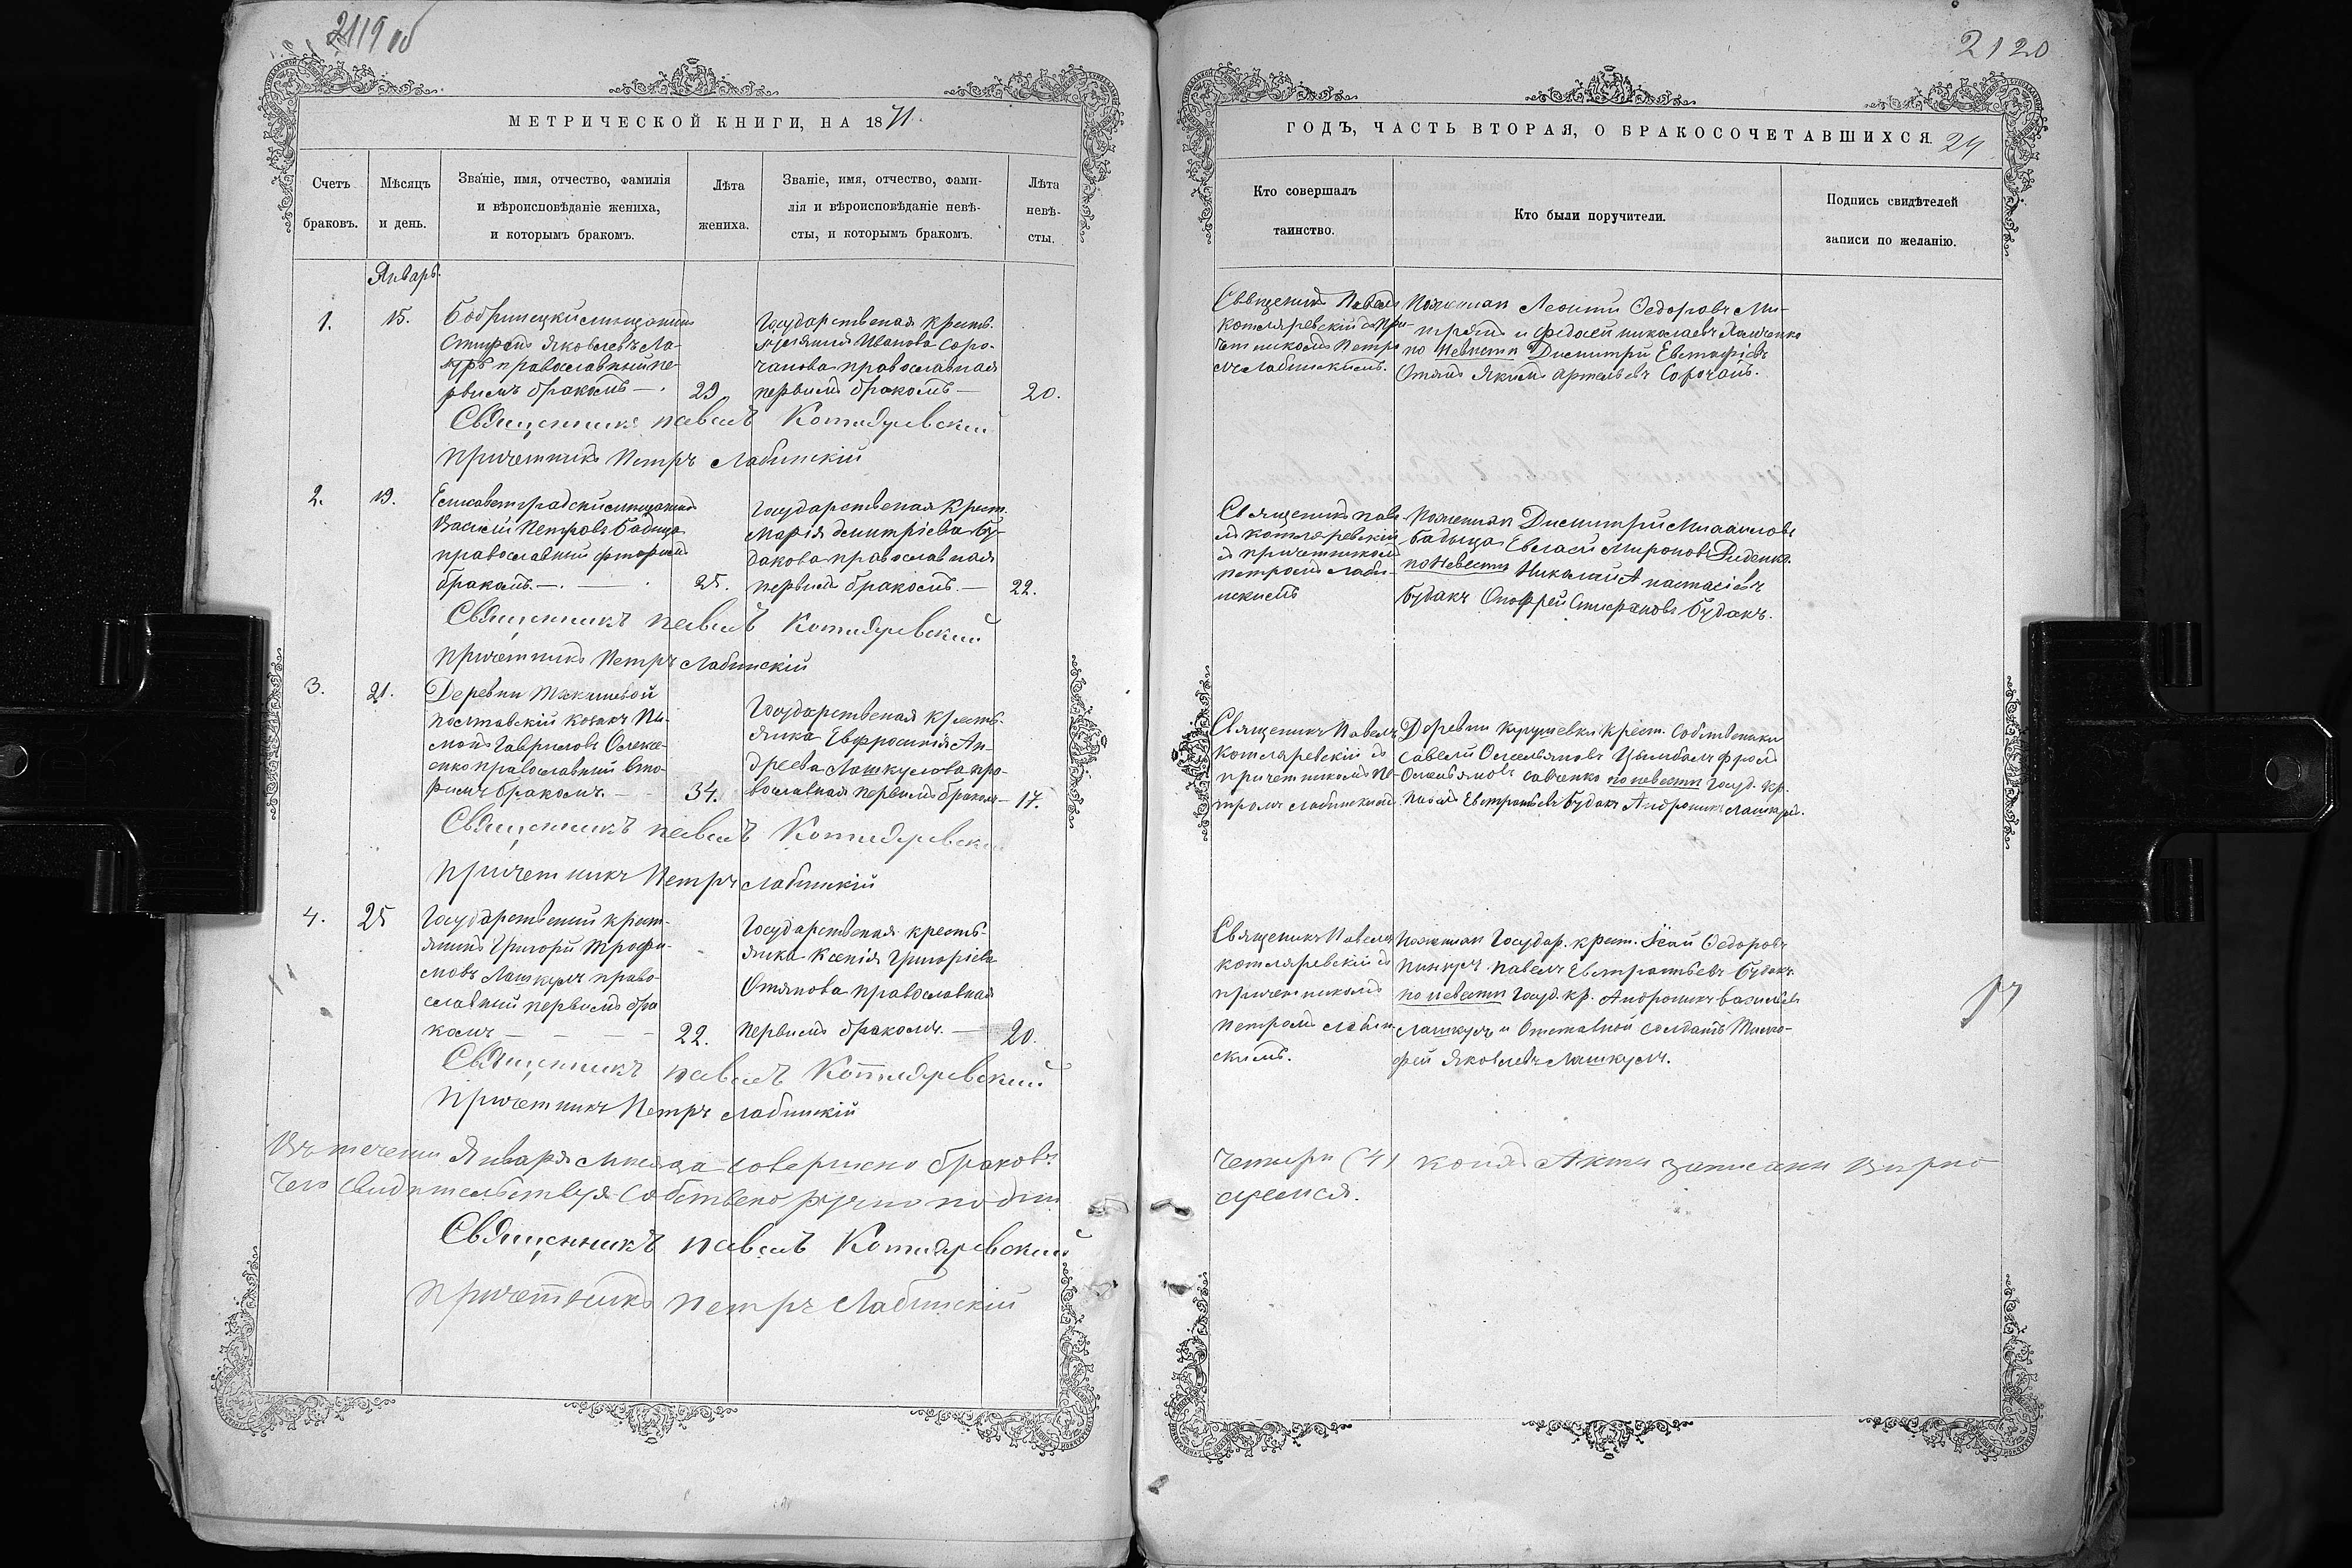 2119 об
МЕТРИЧЕСКОЙ КНИГИ, НА 1871.
Счетъ браковъ.
Мѣсяцъ и день.
Званіе, имя, отчество, фамилія
и вѣроисповѣданіе жениха,
и которымъ бракомъ.
Лѣта жениха.
Званіе, имя, отчество, фами-
лія и вѣроисповѣданіе невѣ-
сты, и которымъ бракомъ.
Лѣта невѣ-
сты.
Январь
1. 15.
Бобринецкій мищанинъ
Яковлевъ Ма-
православный пе-
рвымъ бракомъ —. 29
Государственая кресть.
Иванова Соро-
чанова православная
первымъ бракомъ — 20.
Священникъ Павелъ Котляревский
Причетникъ Петръ Лабинскій
2. 19.
Елисаветградскій мищанинъ
Васили Петровъ Бабица
православный фторимъ
бракомъ. —. — . 25.
Государственая Крест.
Марія Дмитріева Бу-
дакова православная
первымъ бракомъ. — 22.
Священникъ Павелъ Котляревский
Причетникъ Петръ Лабинскій
3. 21.
Деревни
козакъ Пи-
монъ Гавриловъ Олексе-
енко православный вто-
римъ бракомъ. — 34.
Государственая кресть-
янка Евфросинія Ан-
дреева Лашкулова пра-
вославная первымъ бракомъ — 17.
Священникъ Павелъ Котляревски
Причетникъ Петръ Лабинскій
4. 25
Государственый крест-
янинъ Григори Трофи-
мовъ Лашкулъ право-
славный первымъ бра
комъ — — — 22.
Государственая кресть-
янка Ксенія Григоріева
Отянова православная
первымъ бракомъ. — 20.
Священникъ Павелъ Котляревский
Причетникъ Петръ Лабинскій
Въ течении Января мисяца совершено браковъ
Чего свидительствуя Собствено ручно подпи
Священникъ Павелъ Котляревский
Причетникъ Петръ Лабинскій
2120
ГОДЪ, ЧАСТЬ ВТОРАЯ, О БРАКОСОЧЕТАВШИХСЯ. 24
Кто совершалъ
таинство.
Кто были поручители.
Подпись свидѣтелей
записи по желанію.
Священикъ Павелъ
Котляревскій съ при-
четникомъ Петро
мъ Лабинскимъ.
Пожених Леонти Федоровъ
и николаевъ
по Невести Димитри Евстафіевъ
Отянъ Якимъ Сорочанъ.
Священикъ Паве
лъ Котляревскій
съ причетникомъ
Петромъ Лаби-
нскимъ
Поженихи Димитри
Бабица Мироновъ Диденко.
по Невести Николай Анастасіевъ
Будакъ Онофрей Стефановъ Будакъ.
Священикъ Павелъ
Котляревскій съ
причетникомъ Пе-
тромъ Лабинскимъ
Деревни Крест. Собственики
Савели Омельяновъ Цимбалъ Фролъ
Омельяновъ Савченко по невести Госуд. кр.
Павелъ Евстратьевъ Будакъ Андроникъ Лашкулъ.
Священикъ Павелъ
Котляревскій съ
причетникомъ
Петромъ Лабин
скимъ.
Поженихи Государ. крест. Федоровъ
Павелъ Евстратьевъ Будакъ
по невести Госуд. кр. Андроникъ Васильевъ
Лашкулъ и Отставной солдатъ Тимо-
фей Яковлевъ Лашкулъ.
Четыри (4) коихъ Акты записани вирно
суемся.